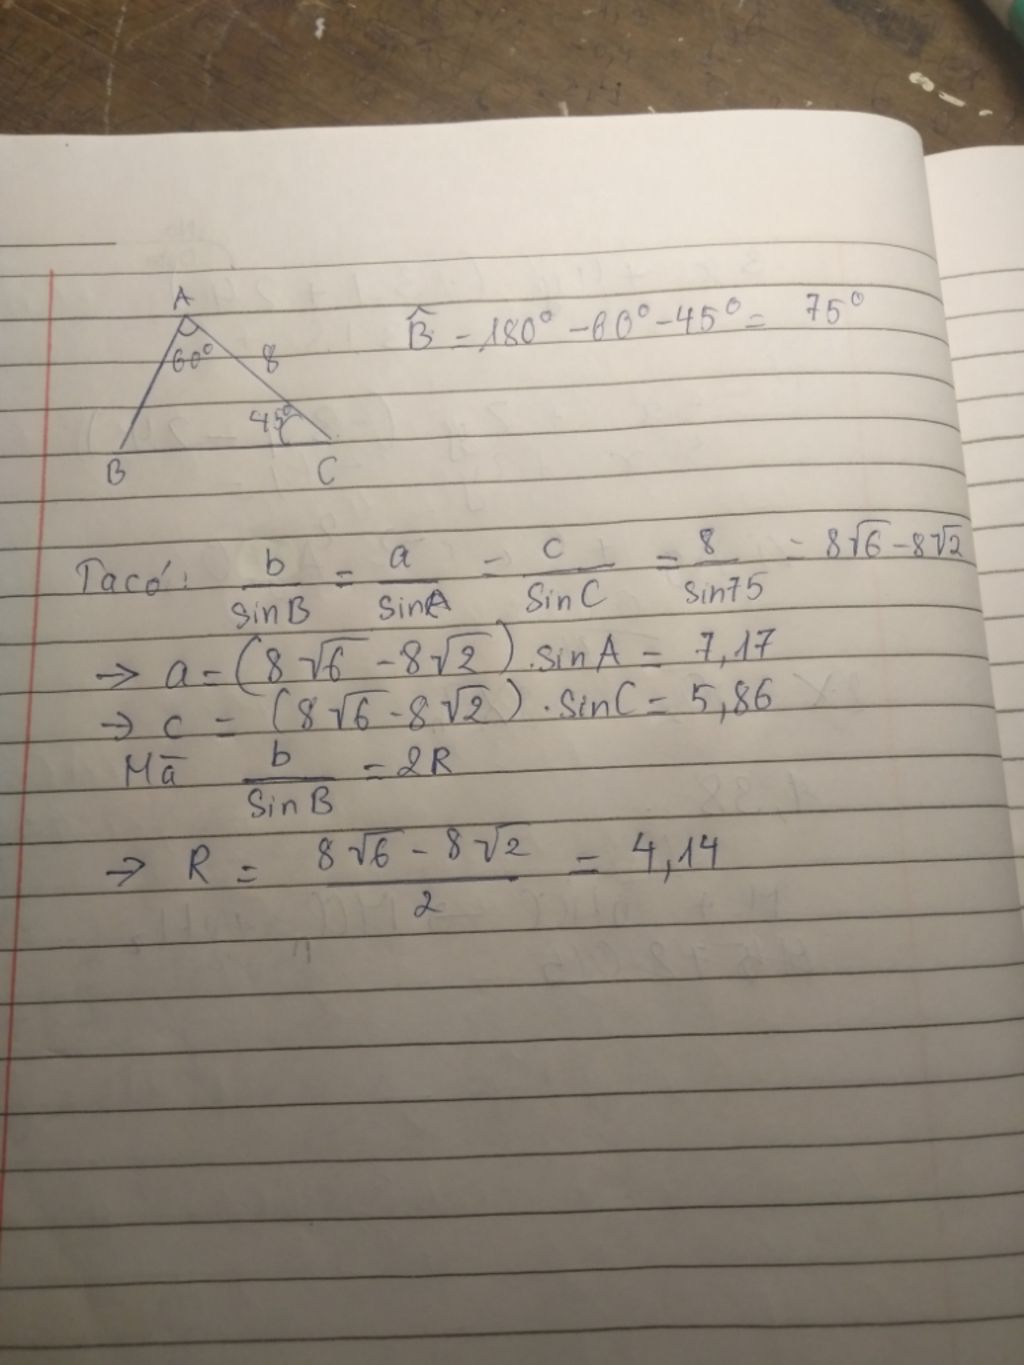 A
60° 8
45°
B C
B̂ = 180° - 60° - 45° = 75°
Ta có: b/sinB = a/sinA = c/sinC = 8/sin75 = 8√6 - 8√2
→ a = (8√6 - 8√2).sinA = 7,17
→ c = (8√6 - 8√2).sinC = 5,86
Mà b/sinB = 2R
→ R = (8√6 - 8√2)/2 = 4,14